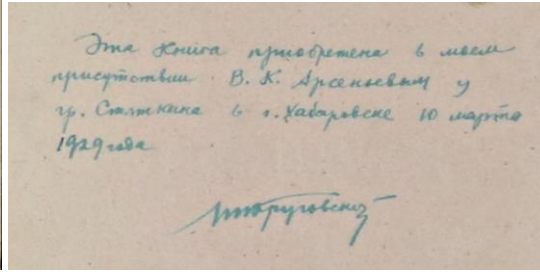 Эта книга приобретена в моем
присутствии В. К. Арсеньевым у
гр. Сяткина в г. Хабаровске 10 марта
1929 года